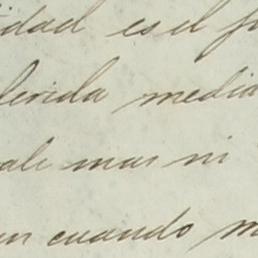 idad es el
ferida media
ale mas ni
un cuando m